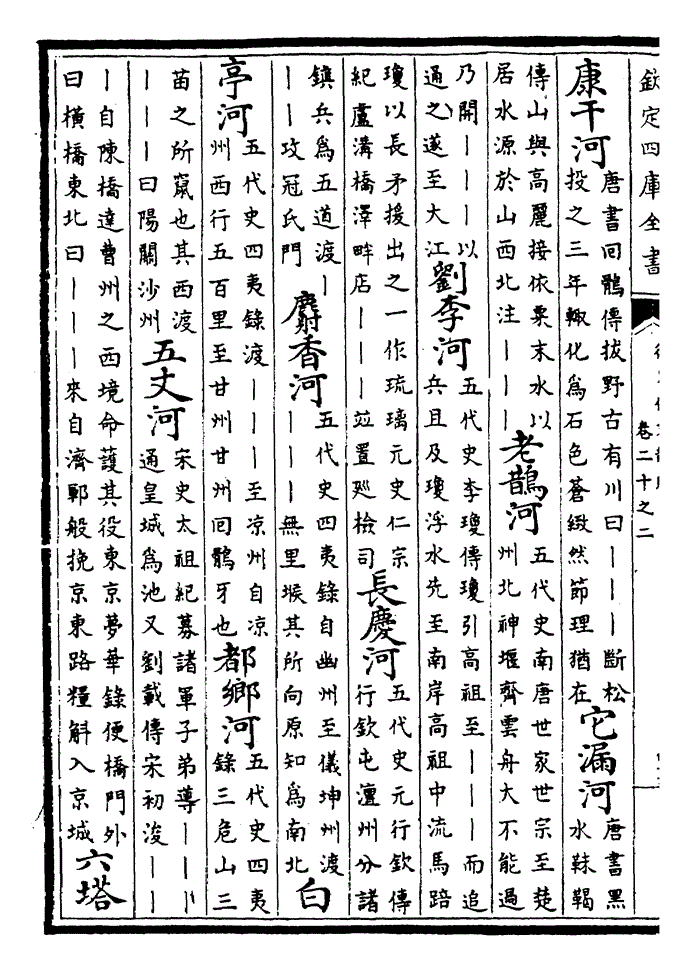 欽定四庫全書
卷二十之二
康干河
唐書回鶻傳拔野古有川曰｜｜｜斷松
投之三年輙化爲石色蒼緻然節理猶在
它漏河
唐書黑
水靺鞨
傳山與高麗接依粟末水以
居水源於山西北注｜｜｜
老鵲河
五代史南唐世家世宗至楚
州北神堰齊雲舟大不能過
乃開｜｜｜以
通之遂至大江
劉李河
五代史李瓊傳瓊引高祖至｜｜｜而追
兵且及瓊浮水先至南岸高祖中流馬踣
瓊以長矛援出之一作琉璃元史仁宗
紀盧溝橋澤畔店｜｜｜竝置廵檢司
長慶河
五代史元行欽傳
行欽屯澶州分諸
鎮兵爲五道渡｜
｜｜攻冠氏門
麝香河
五代史四夷錄自幽州至儀坤州渡
｜｜｜無里堠其所向原知爲南北
白
亭河
五代史四夷錄渡｜｜｜至凉州自凉
州西行五百里至甘州甘州回鶻牙也
都鄉河
五代史四夷
錄三危山三
苗之所竄也其西渡
｜｜｜曰陽關沙州
五丈河
宋史太祖紀募諸軍子弟導｜｜｜
通皇城爲池又劉載傳宋初浚｜｜
｜自陳橋達曹州之西境命護其役東京夢華錄便橋門外
曰橫橋東北曰｜｜｜來自濟鄆般挽京東路糧斛入京城
六塔